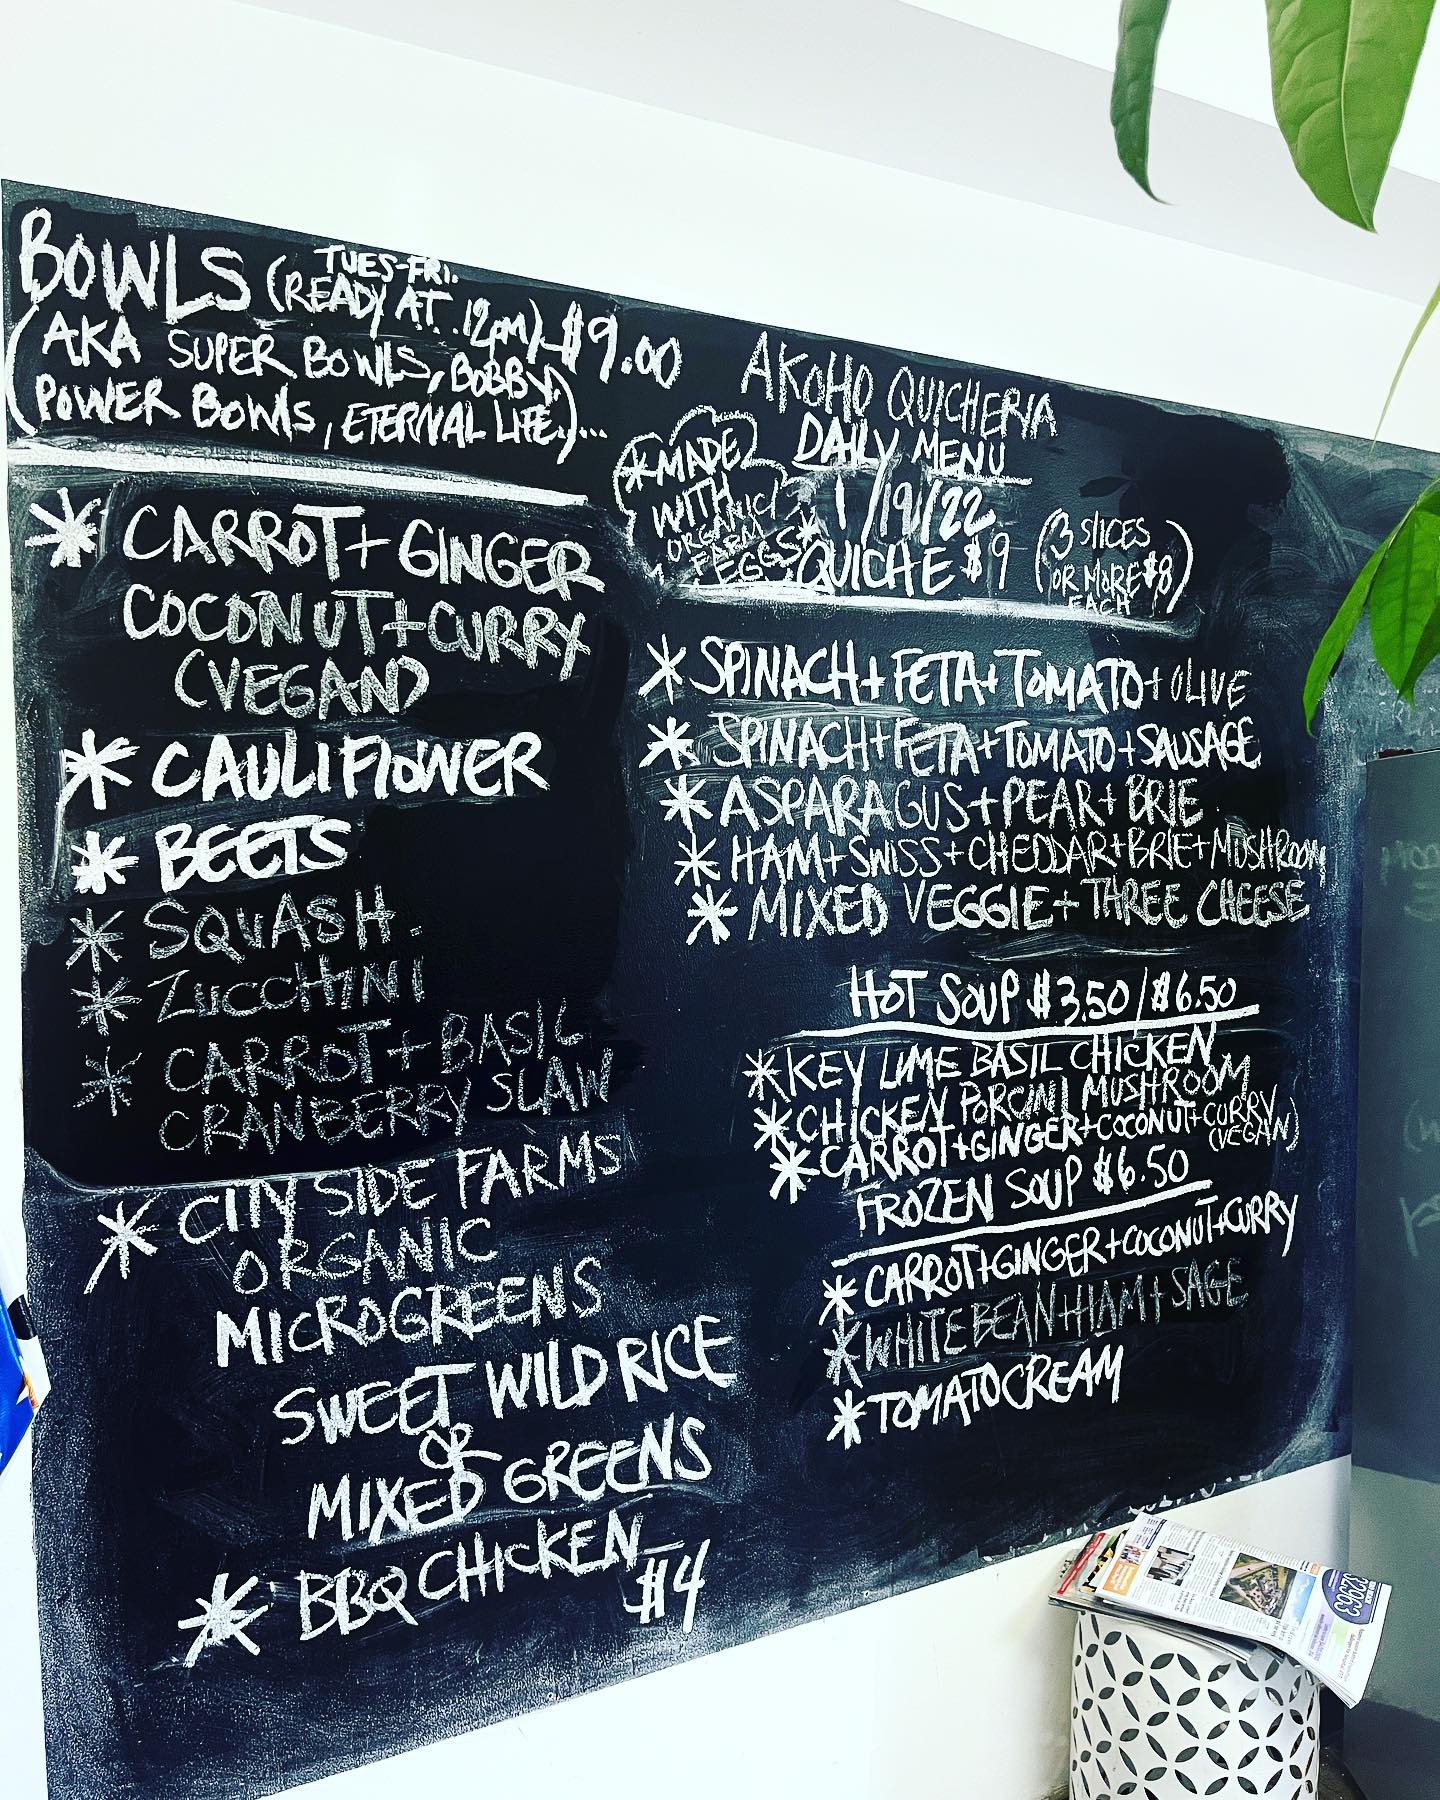 BOWLS (TUES-FRI. READY AT 12PM) $9.00
(AKA SUPER BOWLS, BOBBY,
POWER BOWLS, ETERNAL LIFE.)...
* CARROT + GINGER
COCONUT + CURRY
(VEGAN)
* CAULIFLOWER
* BEETS
* SQUASH
* ZUCCHINI
* CARROT + BASIL
CRANBERRY SLAW
* CITY SIDE FARMS
ORGANIC
MICROGREENS
SWEET WILD RICE
OR
MIXED GREENS
* BBQ CHICKEN
$4
AKOHO QUICHERIA
DAILY MENU
1/19/22
*MADE
WITH
ORGANIC
FARM
EGGS*
QUICHE $9 (3 SLICES
OR MORE $8
EACH)
* SPINACH + FETA + TOMATO + OLIVE
* SPINACH + FETA + TOMATO + SAUSAGE
* ASPARAGUS + PEAR + BRIE
* HAM + SWISS + CHEDDAR + BRIE + MUSHROOM
* MIXED VEGGIE + THREE CHEESE
HOT SOUP $3.50 / $6.50
* KEY LIME BASIL CHICKEN
* CHICKEN PORCINI MUSHROOM
* CARROT + GINGER + COCONUT + CURRY
(VEGAN)
FROZEN SOUP $6.50
* CARROT + GINGER + COCONUT + CURRY
* WHITE BEAN + HAM + SAGE
* TOMATO CREAM
32963